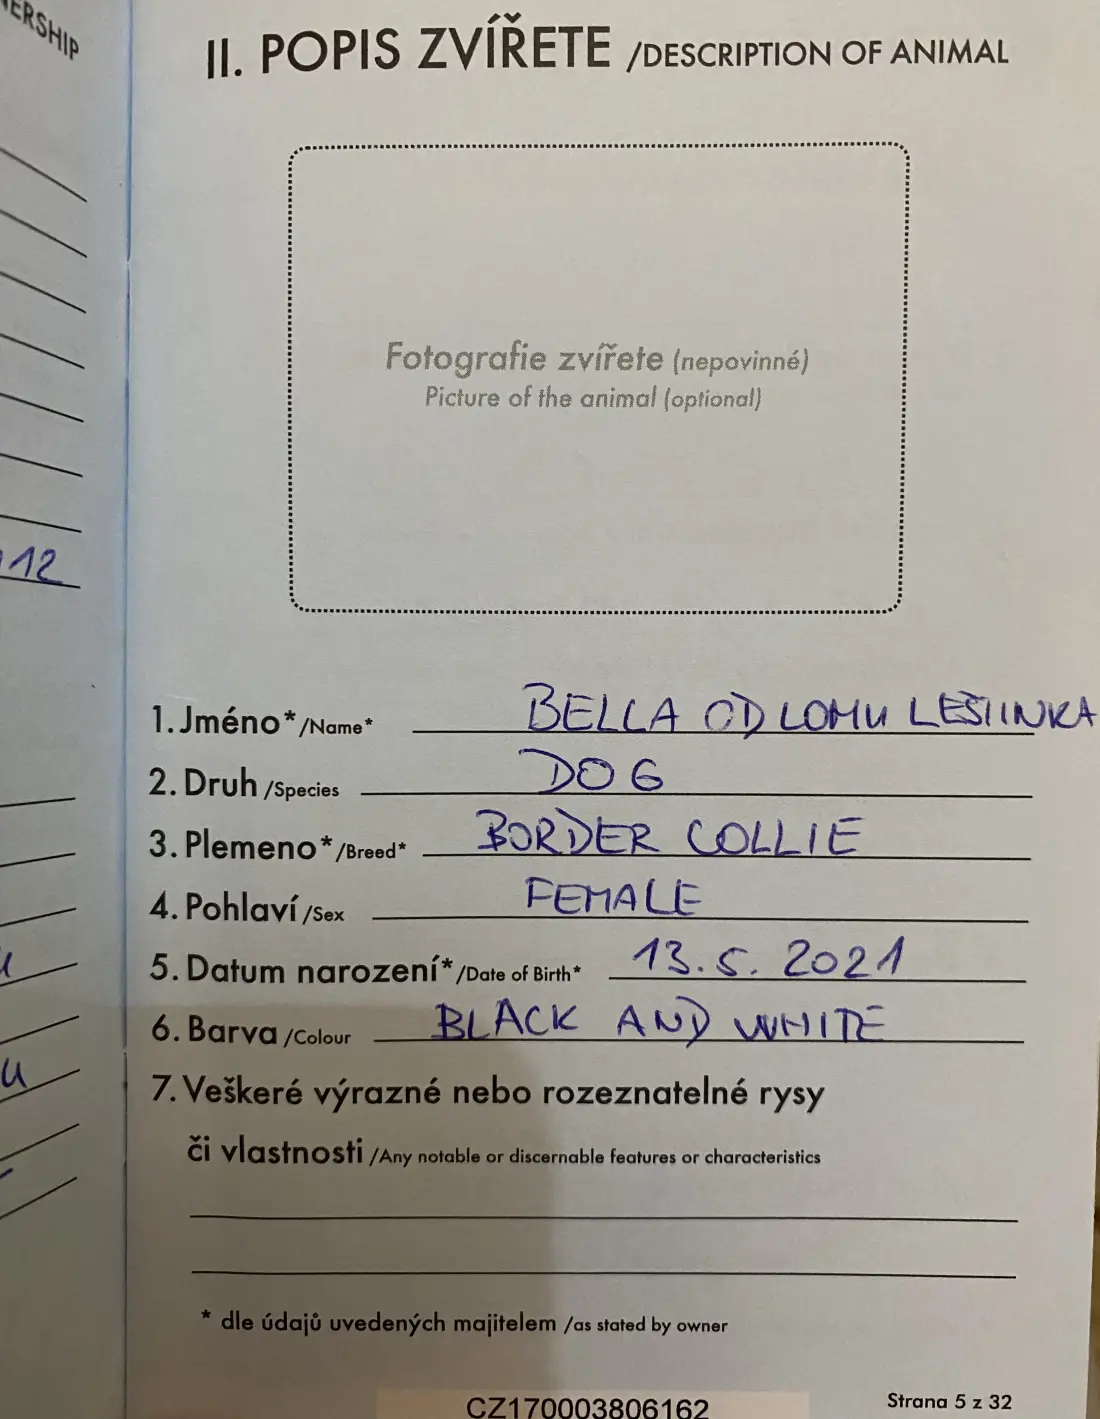 NERSHIP
112
II. POPIS ZVÍŘETE /DESCRIPTION OF ANIMAL
Fotografie zvířete (nepovinné)
Picture of the animal (optional)
1. Jméno* /Name* BELLA OD LOMU LEŠTINKA
2. Druh /Species DOG
3. Plemeno* /Breed* BORDER COLLIE
4. Pohlaví /Sex FEMALE
5. Datum narození* /Date of Birth* 13. 5. 2021
6. Barva /Colour BLACK AND WHITE
7. Veškeré výrazné nebo rozeznatelné rysy
či vlastnosti /Any notable or discernable features or characteristics
* dle údajů uvedených majitelem /as stated by owner
CZ170003806162
Strana 5 z 32